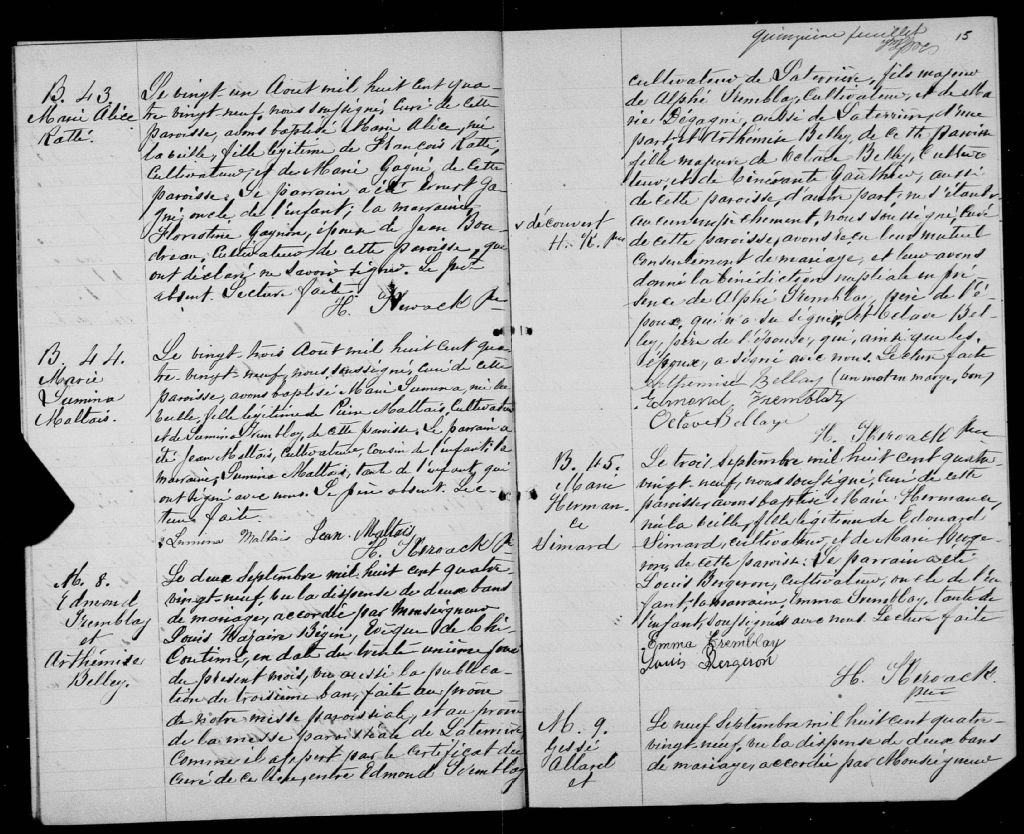 B. 43.
Marie Alice
Ratté.
Le vingt un Août mil huit cent qua-
tre vingt neuf, nous soussigné, Curé de cette
paroisse, avons baptisé Marie Alice, née
la veille, fille légitime de François Ratté,
Cultivateur, et de Marie Gagné de cette
paroisse. Le parrain a été Ernest Ga-
gné, oncle de l'enfant; la marraine
Florentine Gagnon, épouse de Jean Bou-
dreau, Cultivateur de cette paroisse, qui
ont déclaré ne savoir signer. Le père
absent. Lecture faite
H. Kerouack Ptre
B. 44.
Marie
Lumina
Maltais.
Le vingt-trois Août mil huit cent qua-
tre-vingt-neuf, nous, soussigné, Curé de cette
paroisse, avons baptisé Marie Lumina, née la
veille, fille légitime de Pierre Maltais, Cultivateur
et de Lumina Tremblay, de cette paroisse. Le parrain a
été Jean Maltais, Cultivateur, cousin de l'enfant; la
marraine, Lumina Maltais, tante de l'enfant, qui
ont signé avec nous. Le père absent. Lec-
ture faite.
Lumina Maltais Jean Maltais
H. Kerouack Ptre
M. 8.
Edmond
Tremblay
et
Arthémise
Belley.
Le deux Septembre mil huit cent quatre
vingt-neuf, vu la dispense de deux bans
de mariage, accordée par Monseigneur
Louis Nazaire Bégin, Evêque de Chi-
coutimi, en date du trente unième jour
du présent mois, vu aussi la publica-
tion du troisième ban, faite au prone
de notre messe paroissiale, et au prone
de la messe paroissiale de Laterrière,
comme il appert par le certificat du
curé de ce lieu, entre Edmond Tremblay
quinzième feuillet
15
cultivateur de Laterrière, fils majeur
de Alphé Tremblay, Cultivateur, et de Ma-
rie Dégagné, aussi de Laterrière, d'une
part, et Arthémise Belley, de cette paroisse
fille majeure de Octave Belley, Cultiva-
teur, et de Vénérante Gauthier, aussi
de cette paroisse, d'autre part, ne s'étant
aucun empêchement, nous soussigné, Curé
v découvert
H. K. ptre
de cette paroisse, avons reçu leur mutuel
consentement de mariage, et leur avons
donné la bénédiction nuptiale en pré-
sence de Alphé Tremblay, père de l'é-
poux, qui n'a su signer, et Octave Bel-
ley, père de l'épouse, qui, ainsi que les
époux, a signé avec nous. Lecture faite
Arthémise Belley (un mot en marge, bon)
Edmond Tremblay
Octave Belley
H. Kerouack ptre
B. 45.
Marie
Herman-
ce
Simard
Le trois septembre mil huit cent quatre
vingt-neuf, nous soussigné, Curé de cette
paroisse, avons baptisé Marie Hermance,
née la veille, fille légitime de Edouard
Simard, cultivateur, et de Marie Berge-
ron, de cette paroisse. Le parrain a été
Louis Bergeron, Cultivateur, oncle de l'en-
fant, la marraine, Emma Tremblay, tante de
l'enfant, soussignés avec nous. Lecture faite
Emma Tremblay
Louis Bergeron
H. Kerouack.
ptre
M. 9.
Gessé
Allard
et
Le neuf Septembre mil huit cent quatre-
vingt-neuf, vu la dispense de deux bans
de mariage, accordée par Monseigneur